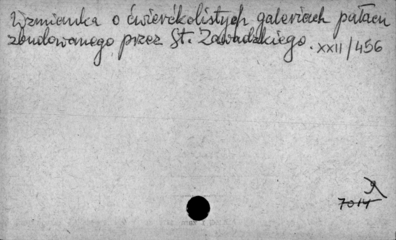 Wzmianka o ćwierćkolistych galeriach pałacu
zbudowanego przez St. Zawadzkiego. XXII/456
7014